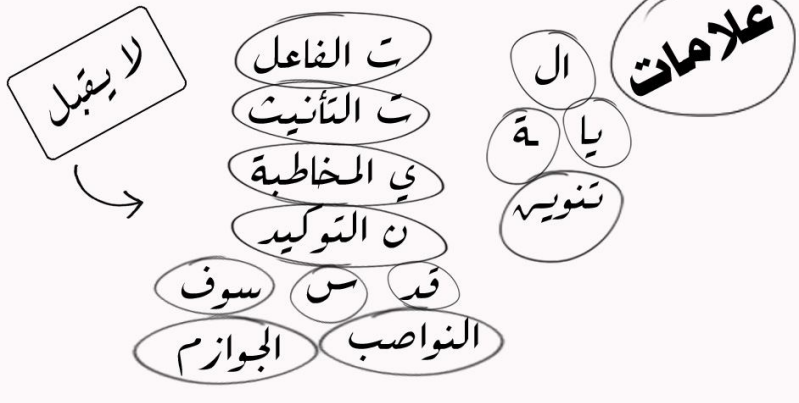 علامات
ال
يا
ـة
تنوين
ت الفاعل
ت التأنيث
ي المخاطبة
ن التوكيد
قد س سوف
النواصب الجوازم
لا يقبل